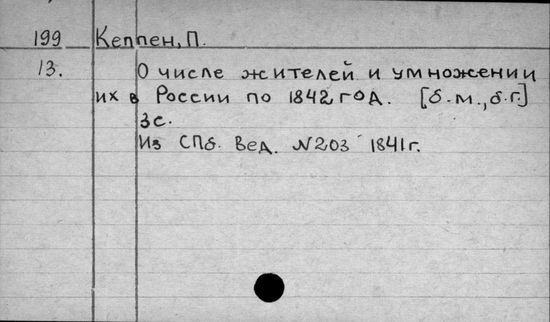 199 Кеппен, П.
13. О числе жителей и умножении
их в России по 1842 год. [б.м., б.г.]
3с.
Из СПб. Вед. N203 1841г.